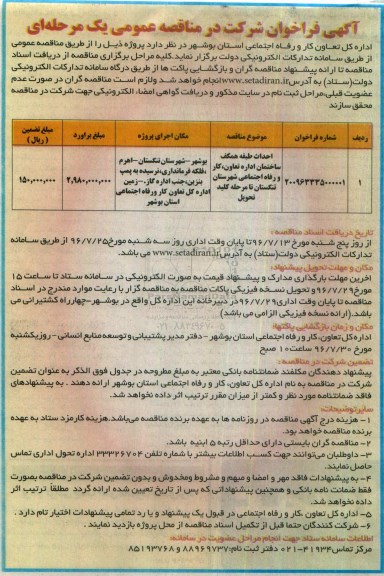 آگهی فراخوان شرکت در مناقصه عمومی یک مرحله‌ای
اداره کل تعاون کار و رفاه اجتماعی استان بوشهر در نظر دارد پروژه ذیل را از طریق مناقصه عمومی
از طریق سامانه تدارکات الکترونیکی دولت برگزار نماید. کلیه مراحل برگزاری مناقصه از دریافت اسناد
مناقصه تا ارائه پیشنهاد مناقصه گران و بازگشایی پاکت ها از طریق درگاه سامانه تدارکات الکترونیکی
دولت (ستاد) به آدرس www.setadiran.ir انجام خواهد شد ولازم است مناقصه گران در صورت عدم
عضویت قبلی، مراحل ثبت نام در سایت مذکور و دریافت گواهی امضاء الکترونیکی جهت شرکت در مناقصه
محقق سازند
ردیف شماره فراخوان موضوع مناقصه مکان اجرای پروژه مبلغ برآورد مبلغ تضمین (ریال)
۱ ۲۰۰۹۶۳۳۳۵۰۰۰۰۰۱ احداث طبقه همکف ساختمان اداره تعاون، کار و رفاه اجتماعی شهرستان تنگستان تا مرحله کلید تحویل بوشهر–شهرستان تنگستان–اهرم ،فلکه فرمانداری، نرسیده به پمپ بنزین، جنب اداره گاز.–زمین اداره کل تعاون کار ورفاه اجتماعی استان بوشهر ۲,۹۸۰,۰۰۰,۰۰۰ ۱۵۰,۰۰۰,۰۰۰
تاریخ دریافت اسناد مناقصه :
از روز پنج شنبه مورخ ۹۶/۷/۱۳ تا پایان وقت اداری روز سه شنبه مورخ ۹۶/۷/۲۵ از طریق سامانه
تدارکات الکترونیکی دولت (ستاد) به آدرس www.setadiran.ir می باشد.
مکان و مهلت تحویل پیشنهاد:
آخرین مهلت بارگذاری مدارک و پیشنهاد قیمت به صورت الکترونیکی در سامانه ستاد تا ساعت ۱۵
مورخ ۹۶/۷/۲۹ و تحویل نسخه فیزیکی پاکات مناقصه به مناقصه گزار با رعایت موارد مندرج در اسناد
مناقصه تا پایان وقت اداری ۹۶/۷/۲۹ در دبیرخانه این اداره کل واقع در بوشهر–چهارراه کشتیرانی می
باشد. (ارائه نسخه فیزیکی الزامی می باشد)
مکان و زمان بازگشایی پاکتها:
اداره کل تعاون، کار و رفاه اجتماعی استان بوشهر – دفتر مدیر پشتیبانی و توسعه منابع انسانی – روز یکشنبه
مورخ ۹۶/۷/۳۰ ساعت ۱۰ صبح
تضمین شرکت در مناقصه :
پیشنهاد دهندگان مکلفند ضمانتنامه بانکی معتبر به مبلغ مطروحه در جدول فوق الذکر به عنوان تضمین
شرکت در مناقصه به نام اداره کل تعاون، کار و رفاه اجتماعی استان بوشهر ارائه دهند . به پیشنهادهای
فاقد ضمانتنامه مورد نظر و کمتر از میزان مقرر ترتیب اثر داده نخواهد شد.
سایر توضیحات:
۱– هزینه درج آگهی مناقصه در روزنامه ها به عهده برنده مناقصه می‌باشد. هزینه کارمزد ستاد به عهده
برنده مناقصه خواهد بود.
۲– مناقصه گران بایستی دارای حداقل رتبه ۵ ابنیه باشد.
۳– داوطلبان می‌توانند جهت کسب اطلاعات بیشتر با شماره تلفن ۳۳۳۲۶۷۰۴ اداره تحول اداری تماس
حاصل نمایند.
۴– به پیشنهادات فاقد مهر و امضا و مبهم و مشروط ومخدوش و بدون تضمین شرکت در مناقصه بصورت
فقط ضمانت نامه بانکی و همچنین پیشنهاداتی که پس از تاریخ تعیین شده ارائه گردد مطلقا ترتیب اثر
داده نخواهد شد.
۵– اداره کل تعاون ،کار و رفاه اجتماعی در قبول یک پیشنهاد و یا رد تمامی پیشنهادات اختیار تام دارد .
۶– شرکت کنندگان حتما قبل از تکمیل اسناد مناقصه از محل پروژه بازدید نمایند .
اطلاعات سامانه ستاد جهت انجام مراحل عضویت در سامانه:
مرکز تماس ۴۱۹۳۴–۰۲۱ دفتر ثبت نام: ۸۸۹۶۹۷۳۷ و ۸۵۱۹۳۷۶۸